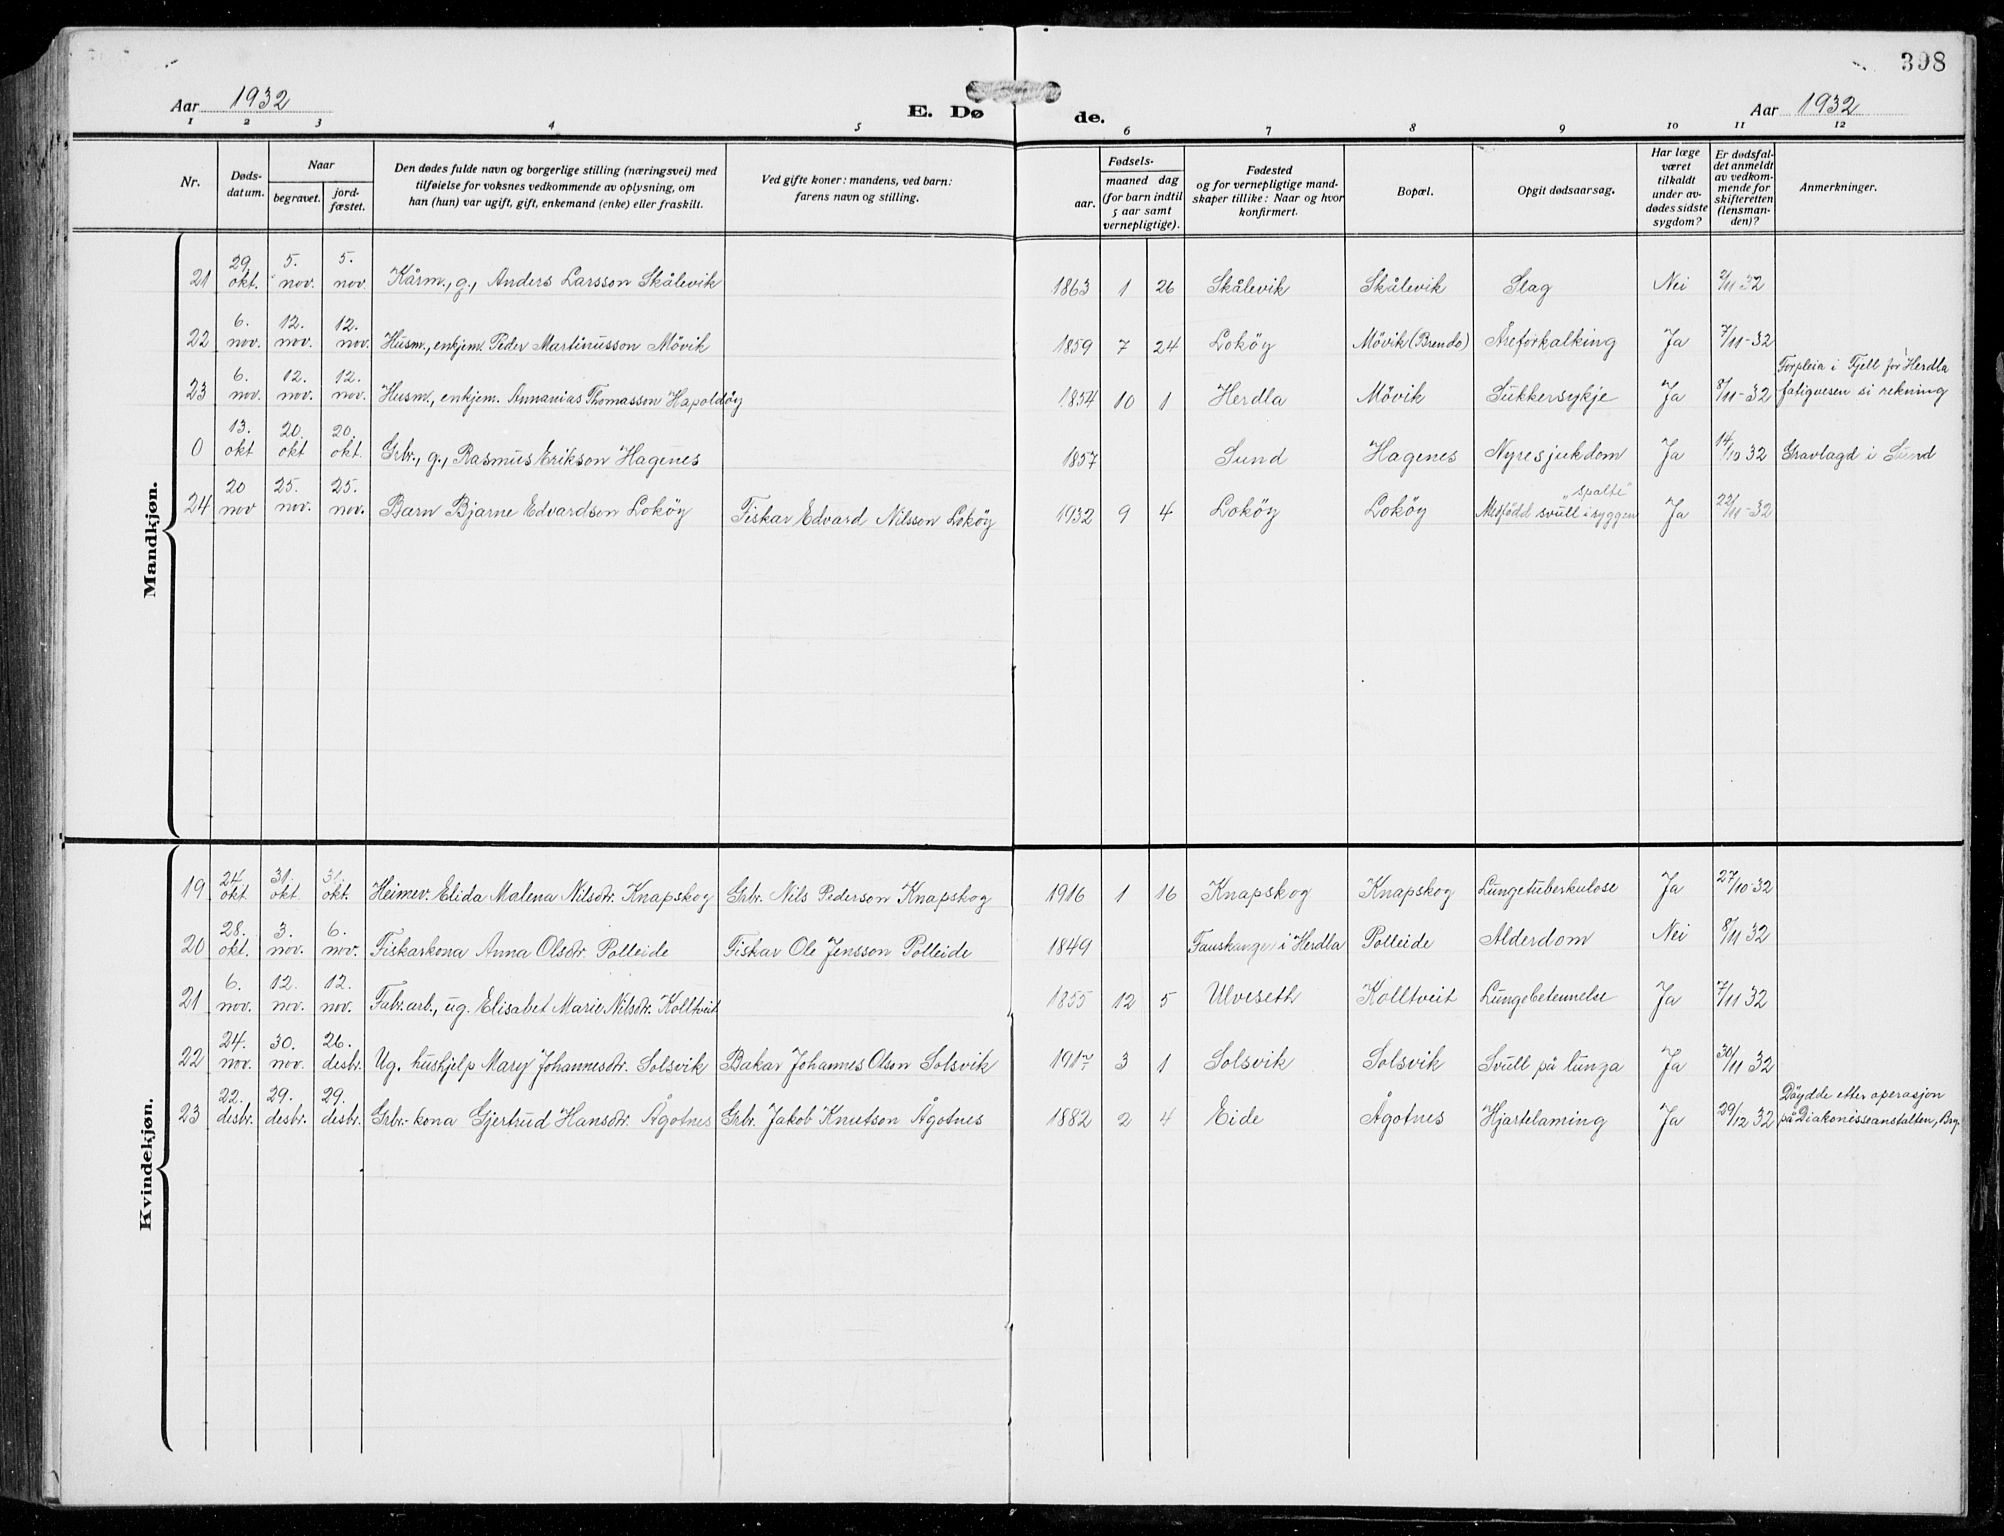 398
Aar 1932
E. Dø de.
Aar 1932
1 2 3 4 5 6 7 8 9 10 11 12
Nr.
Døds-
datum.
Naar
begravet.
jord-
fæstet.
Den dødes fulde navn og borgerlige stilling (næringsvei) med
tilføielse for voksnes vedkommende av oplysning, om
han (hun) var ugift, gift, enkemand (enke) eller fraskilt.
Ved gifte koner: mandens, ved barn:
farens navn og stilling.
Fødsels-
aar.
maaned dag
(for barn indtil
5 aar samt
vernepligtige).
Fødested
og for vernepligtige mand-
skaper tillike: Naar og hvor
konfirmert.
Bopæl.
Opgit dødsaarsag.
Har læge
været
tilkaldt
under av-
dødes sidste
sygdom?
Er dødsfal-
det anmeldt
av vedkom-
mende for
skifteretten
(lensman-
den)?
Anmerkninger.
Mandkjøn.
21 29. okt. 5. nov. 5. nov. Kårm., g., Anders Larsson Skålevik 1863 1 26 Skålevik Skålevik Slag Nei 2/11 32
22 6. nov. 12. nov. 12. nov. Husm., enkjem. Peder Martinusson Mövik 1859 7 24 Loköy Mövik (Brendo) Åreforkalking Ja 7/11-32
23 6. nov. 12. nov. 12. nov. Husm., enkjem. Annanias Thomasson Hapoldöy 1854 10 1 Herdla Mövik Sukkersykje Ja 8/11-32 Forpleia i Fjell for Herdla
fatigvesen si rekning
0 13. okt 20. okt 20. okt. Grbr., g., Rasmus Erikson Hagenes 1857 Sund Hagenes Nyresjukdom Ja 14/10 32 Gravlagd i Sund
24 20 nov 25. nov. 25. nov. Barn Bjarne Edvardson Loköy Fiskar Edvard Nilsson Loköy 1932 9 4 Loköy Loköy Medfödd svull i ryggen "spalte" Ja 22/11-32
Kvindekjøn.
19 24. okt. 31. okt. 31. okt. Heimev. Elida Malena Nilsdtr. Knapskog Grbr. Nils Pederson Knapskog 1916 1 16 Knapskog Knapskog Lungetuberkulose Ja 27/10-32
20 28. okt. 3. nov. 6. nov. Fiskarkona Anna Olsdtr. Polleide Fiskar Ole Jensson Polleide 1849 Fauskanger i Herdla Polleide Alderdom Nei 8/11 32
21 6. nov. 12. nov. 12. nov. Fabr.arb., ug. Elisabet Marie Nilsdtr. Kolltveit 1855 12 5 Ulveseth Kolltveit Lungebetennelse Ja 7/11 32
22 24. nov. 30. nov. 26. desbr. Ug. hushjelp Mary Johannesdtr. Solsvik Bakar Johannes Olson Solsvik 1917 3 1 Solsvik Solsvik Svull på lunga Ja 30/11 32
23 22. desbr. 29. desbr. 29. desbr. Grbr.-kona Gjertrud Hansdtr. Ågotnes Grbr. Jakob Knutson Ågotnes 1882 2 4 Eide Ågotnes Hjartelaming Ja 29/12 32 Döydde etter operasjon
på Diakonisseanstalten, Brg.